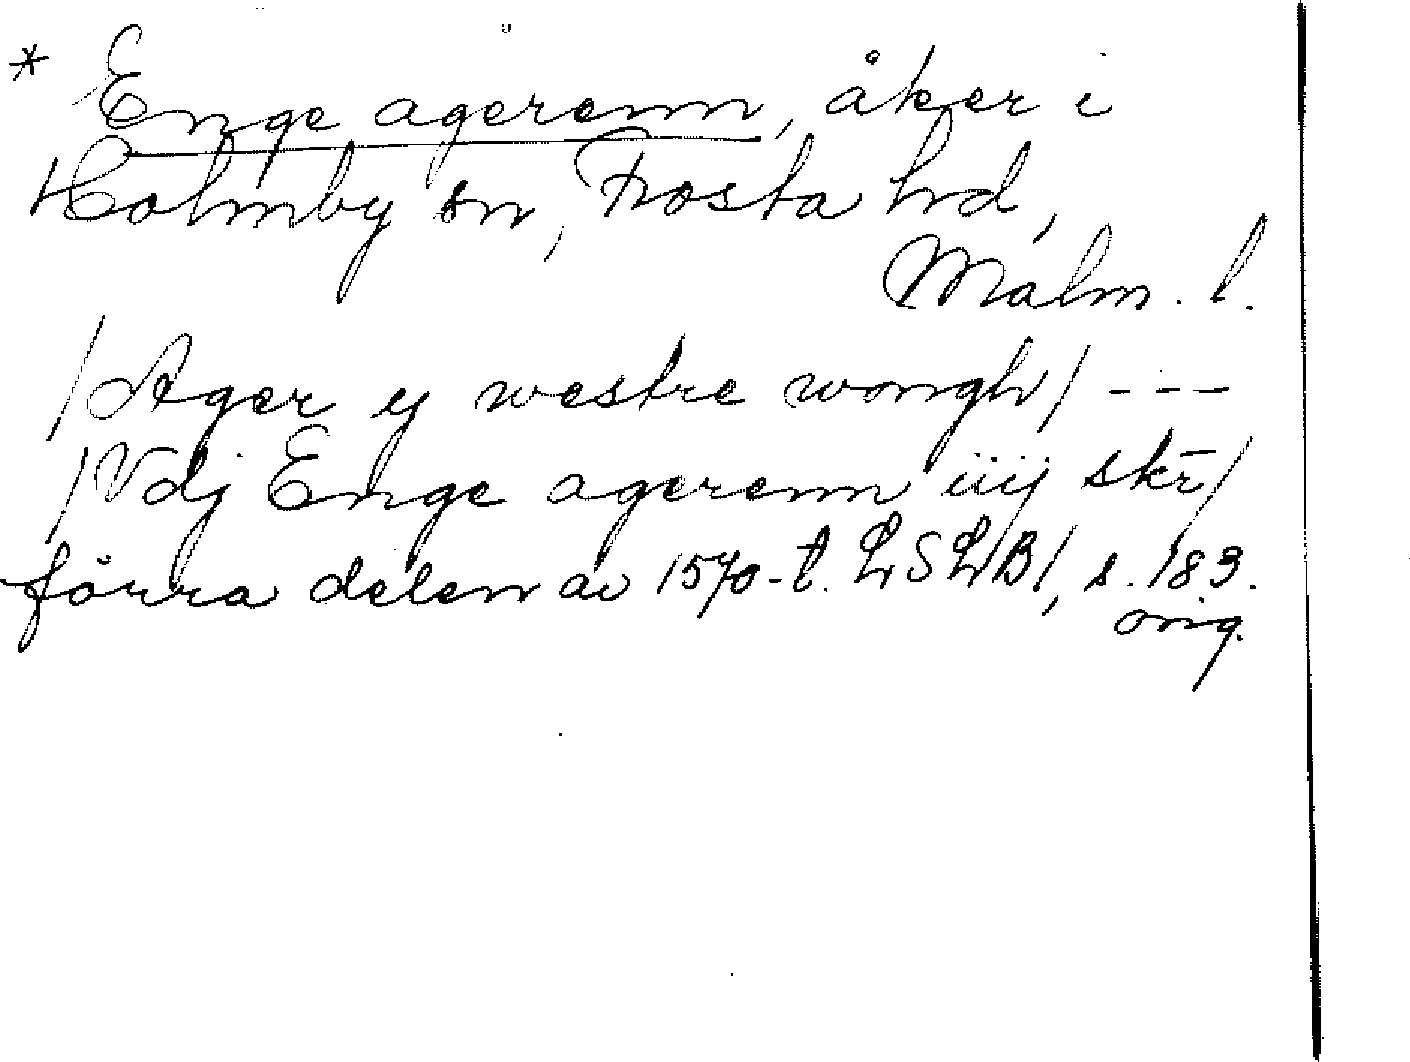 * Enge agerenn, åker i
Holmby sn, Frosta hd,
Malm. l.
/Ager y westre wongh/ ---
/Vdj Enge agerenn iiij skr̄/
förra delen av 1570-t. LSLB1, s. 183.
orig.